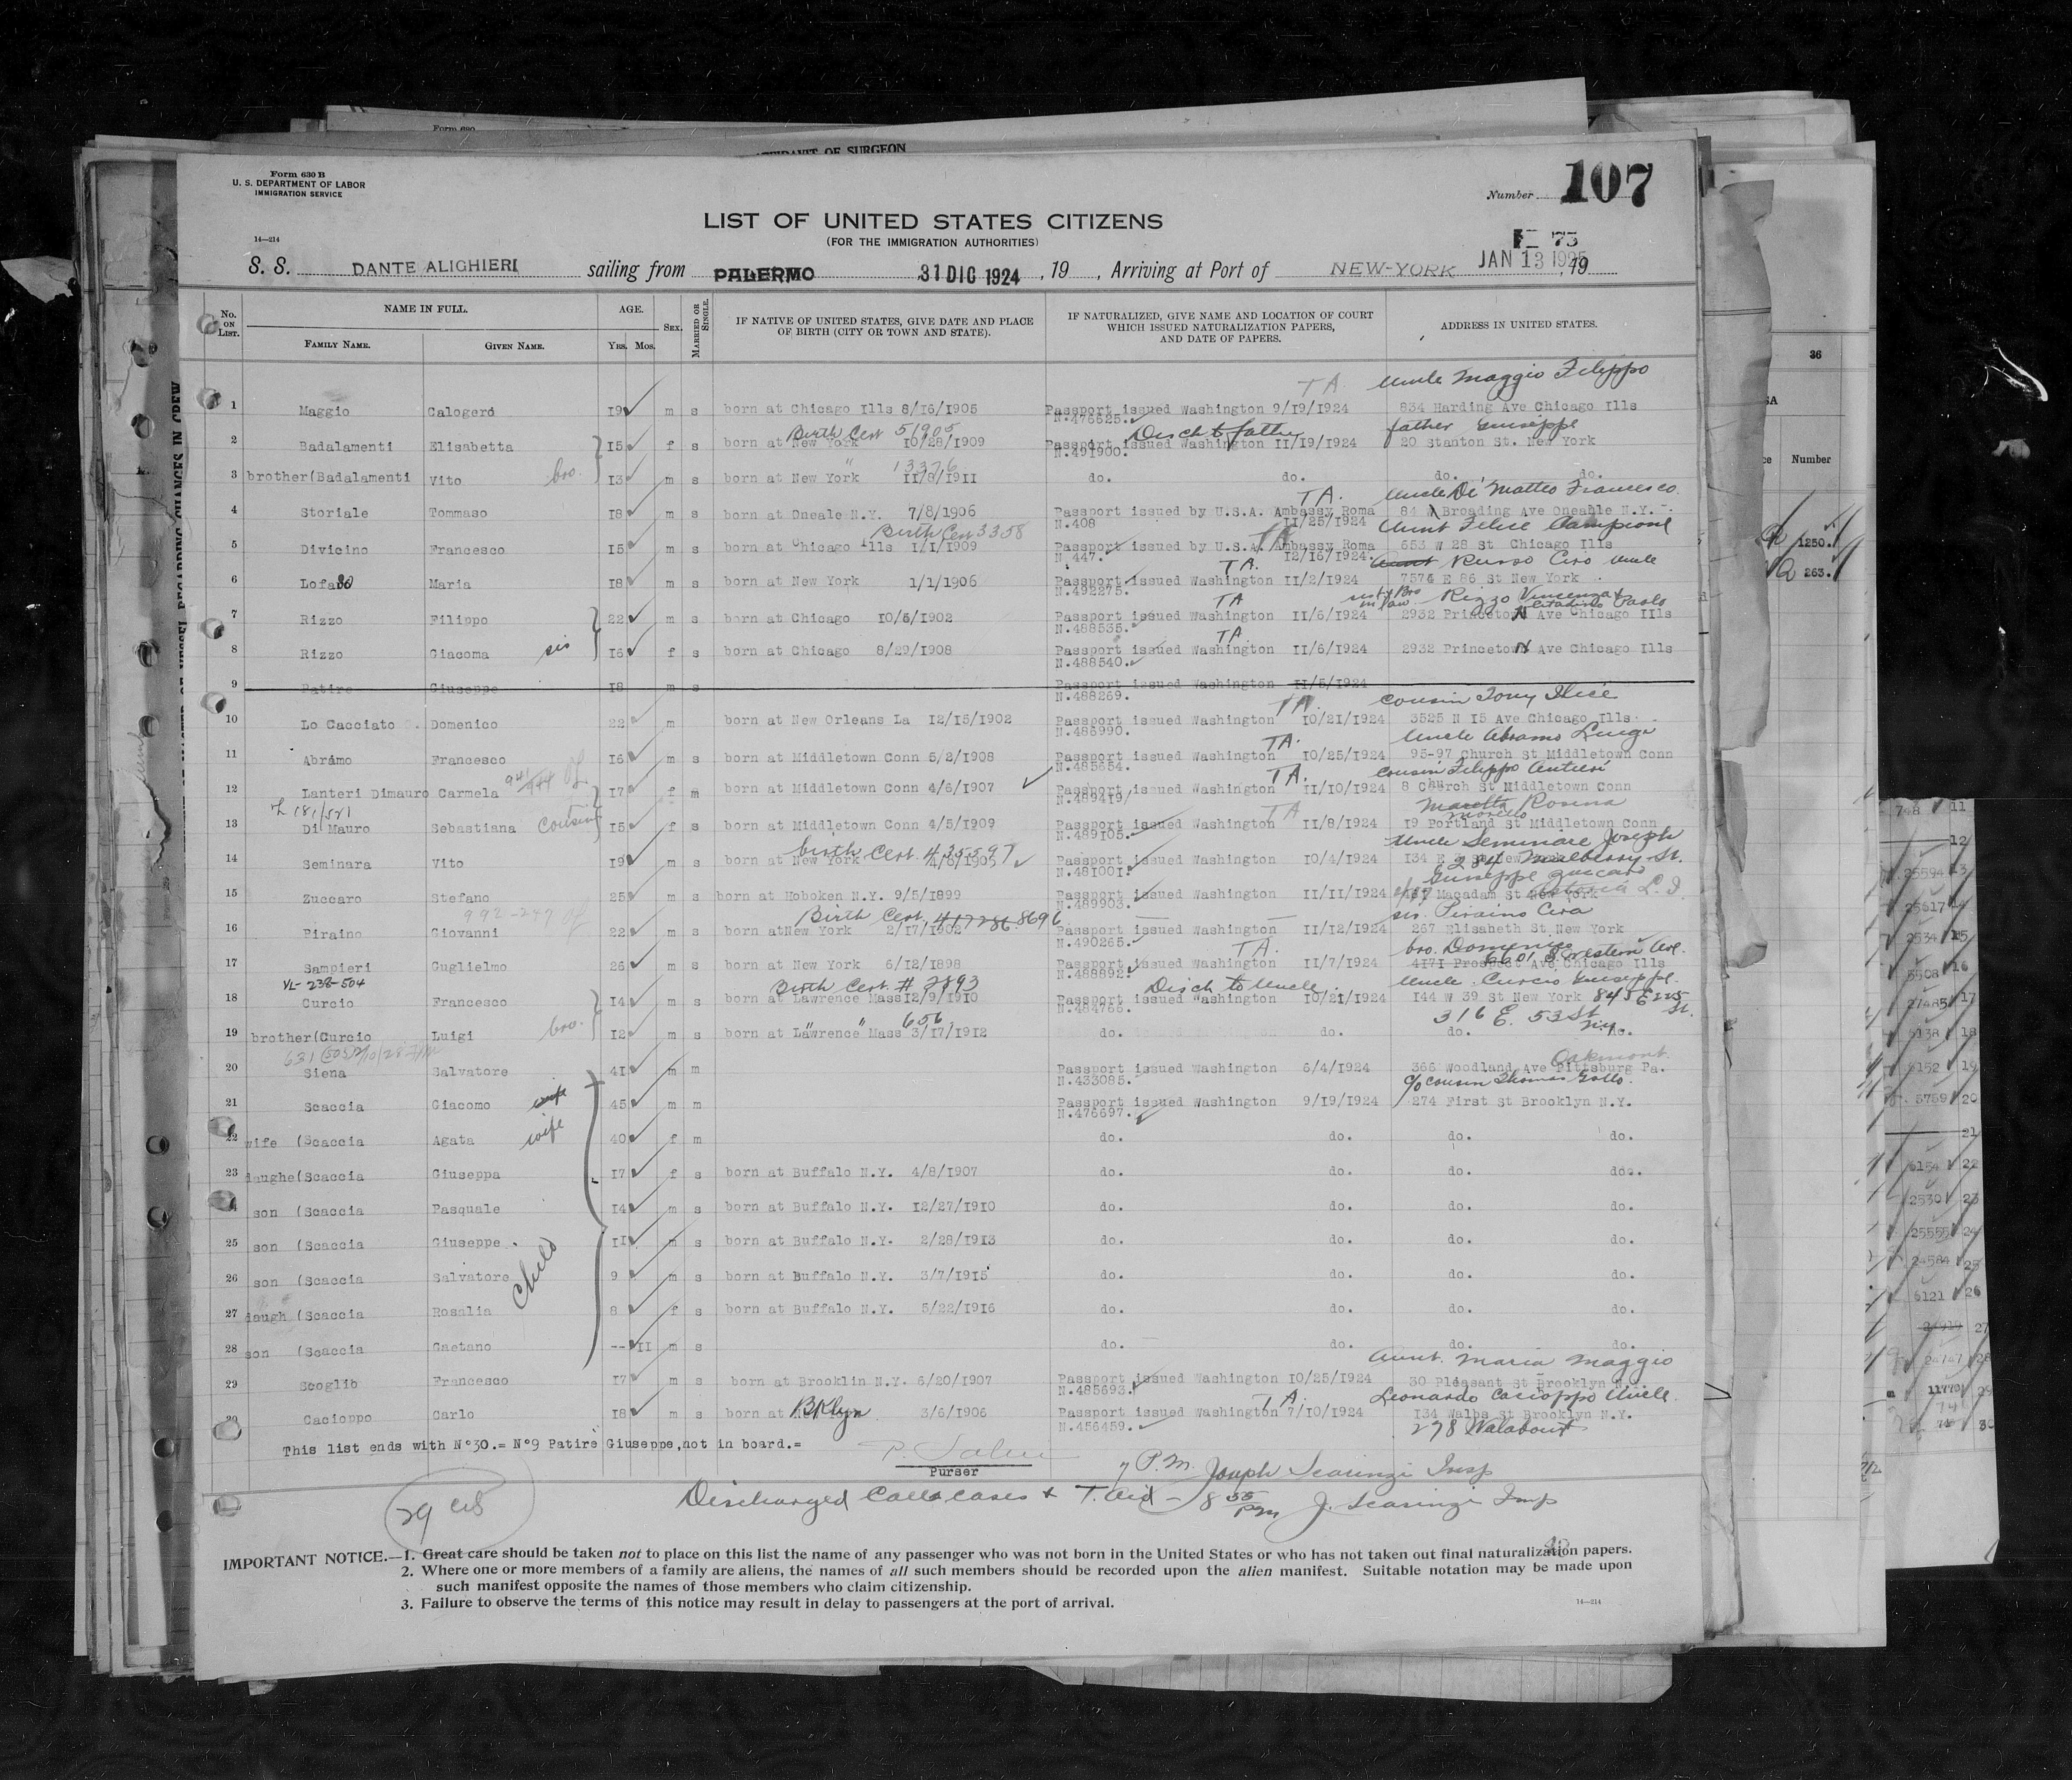 Form 630 B
U. S. DEPARTMENT OF LABOR
IMMIGRATION SERVICE
14—214
Number 107
LIST OF UNITED STATES CITIZENS
(FOR THE IMMIGRATION AUTHORITIES)
S. S. DANTE ALIGHIERI sailing from PALERMO 31 DIC 1924, 19 , Arriving at Port of NEW-YORK JAN 13 1925, 19
No. ON LIST. NAME IN FULL. FAMILY NAME. GIVEN NAME. AGE. YRS. MOS. SEX. MARRIED OR SINGLE. IF NATIVE OF UNITED STATES, GIVE DATE AND PLACE OF BIRTH (CITY OR TOWN AND STATE). IF NATURALIZED, GIVE NAME AND LOCATION OF COURT WHICH ISSUED NATURALIZATION PAPERS, AND DATE OF PAPERS. ADDRESS IN UNITED STATES.
TA. Uncle Maggio Filippo
1 Maggio Calogero 19 m s born at Chicago Ills 8/16/1905 Passport issued Washington 9/19/1924 834 Harding Ave Chicago Ills
N.476625.
Birth Cert 51905 Disch to father father Giuseppe
2 Badalamenti Elisabetta 15 f s born at New York 10/28/1909 Passport issued Washington 11/19/1924 20 Stanton St. New York
N.491900.
13376
3 brother(Badalamenti Vito bro. 13 m s born at New York 11/8/1911 do. do. do. do.
TA. Uncle Di Matteo Francesco
4 Storiale Tommaso 18 m s born at Oneale N.Y. 7/8/1906 Passport issued by U.S.A. Ambassy Roma 84 Broading Ave Oneable N.Y.
N.408 11/25/1924
Birth Cert 3358 TA Aunt Felice Campione
5 Divicino Francesco 15 m s born at Chicago Ills 1/1/1909 Passport issued by U.S.A. Ambassy Roma 653 W 28 St Chicago Ills
N.447. 12/16/1924
TA. Aunt Russo Ciro Uncle
6 Lofaso Maria 18 m s born at New York 1/1/1906 Passport issued Washington 11/2/1924 7574 E 86 St New York
N.492275.
TA Rizzo Vincenza Paolo
7 Rizzo Filippo 22 m s born at Chicago 10/5/1902 Passport issued Washington 11/6/1924 2932 Princeton Ave Chicago Ills
N.488535.
TA
8 Rizzo Giacoma sis 16 f s born at Chicago 8/29/1908 Passport issued Washington 11/6/1924 2932 Princeton Ave Chicago Ills
N.488540.
9 Patire Giuseppe 18 m s Passport issued Washington 11/5/1924
N.488269.
TA. Cousin Tony
10 Lo Cacciato Domenico 22 m born at New Orleans La 12/15/1902 Passport issued Washington 10/21/1924 3525 N 15 Ave Chicago Ills
N.486990.
TA. Uncle Abramo Luigi
11 Abramo Francesco 16 m s born at Middletown Conn 5/2/1908 Passport issued Washington 10/25/1924 95-97 Church St Middletown Conn
N.485654.
TA. Cousin Filippo
12 Lanteri Dimauro Carmela 17 f m born at Middletown Conn 4/6/1907 Passport issued Washington 11/10/1924 8 Church St Middletown Conn
N.489419
TA Rosina
13 Di Mauro Sebastiana cousin 15 f s born at Middletown Conn 4/5/1909 Passport issued Washington 11/8/1924 19 Portland St Middletown Conn
N.489105.
birth Cert. 435597 Uncle Seminare Joseph
14 Seminara Vito 19 m s born at New York 4/6/1905 Passport issued Washington 10/4/1924 134 E
N.481001. 284 Mulberry St.
15 Zuccaro Stefano 25 m s born at Hoboken N.Y. 9/5/1899 Passport issued Washington 11/11/1924 Macadam St New York L.I
N.489903.
992-247
Birth Cert. 417286 8696 sis. Piraino Cira
16 Piraino Giovanni 22 m s born atNew York 2/17/1902 Passport issued Washington 11/12/1924 267 Elisabeth St New York
N.490265.
TA. bro. Domenico 6601 S. Western Ave.
17 Sampieri Guglielmo 26 m s born at New York 6/12/1898 Passport issued Washington 11/7/1924 4171 Prospect Ave Chicago Ills
N.488892.
VL-238-504 Birth Cert. # 2893 Disch to Uncle. Uncle Curcio Giuseppe
18 Curcio Francesco 14 m s born at Lawrence Mass 12/9/1910 Passport issued Washington 10/21/1924 144 W 39 St New York 845 E 225 St.
N.484766.
656 316 E. 53 St N.Y.
19 brother(Curcio Luigi bro. 12 m s born at Lawrence Mass 3/17/1912 do. do. do. do.
Oakmont
20 Siena Salvatore 41 m m Passport issued Washington 6/4/1924 366 Woodland Ave Pittsburg Pa.
N.433085.
c/o cousin Thomas Gallo.
21 Scaccia Giacomo wife 45 m m Passport issued Washington 9/19/1924 274 First St Brooklyn N.Y.
N.476697.
22 wife (Scaccia Agata wife 40 f m do. do. do. do.
23 daughe(Scaccia Giuseppa 17 f s born at Buffalo N.Y. 4/8/1907 do. do. do. do.
24 son (Scaccia Pasquale 14 m s born at Buffalo N.Y. 12/27/1910 do. do. do. do.
25 son (Scaccia Giuseppe 11 m s born at Buffalo N.Y. 2/28/1913 do. do. do. do.
26 son (Scaccia Salvatore Child 9 m s born at Buffalo N.Y. 3/7/1915 do. do. do. do.
27 daugh (Scaccia Rosalia 8 f s born at Buffalo N.Y. 5/22/1916 do. do. do. do.
28 son (Scaccia Gaetano -- 11 m s do. do. do. do.
Aunt. Maria Maggio
29 Scoglio Francesco 17 m s born at Brooklin N.Y. 6/20/1907 Passport issued Washington 10/25/1924 30 Pleasant St Brooklyn N.Y.
N.485693.
TA. Leonardo Cacioppo Uncle.
30 Cacioppo Carlo 18 m s born at BKlyn 3/6/1906 Passport issued Washington 7/10/1924 134 Walbs St Brooklyn N.Y.
N.456459. 278 Walabout
This list ends with N°30.= N°9 Patire Giuseppe,not in board.=
Purser
7 P.M. Joseph Scaringi Insp
29 USB
Discharged Called cases & T. Aid - 8 55 PM J. Scaringi Insp
IMPORTANT NOTICE.—1. Great care should be taken not to place on this list the name of any passenger who was not born in the United States or who has not taken out final naturalization papers.
2. Where one or more members of a family are aliens, the names of all such members should be recorded upon the alien manifest. Suitable notation may be made upon
such manifest opposite the names of those members who claim citizenship.
3. Failure to observe the terms of this notice may result in delay to passengers at the port of arrival.
14—214